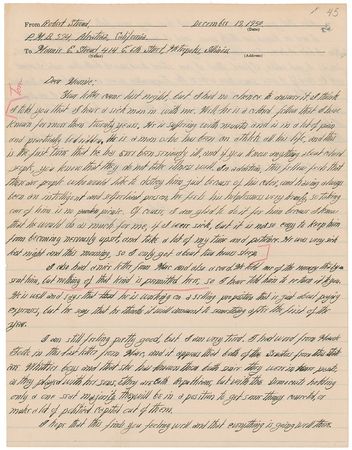 1 45
From Robert Stroud, December 18, 1950
(Date)
P.M.B. 594, Alcatraz, California.
To Marcus E. Stroud, 414 E. 6th Street, Metropolis, Illinois
(Name) (Address)
Dear Marcus;
Your letter came last night, but I had no chance to answer it. I think
I told you that I have a sick man in with me. Well, he is a colored fellow that I have
known for more than twenty years. He is suffering with neuritis and is in a lot of pain
and practically helpless. He is a man who has been an athlete all his life, and this
is the first time that he has ever been seriously ill, and if you know anything about colored
people, you know that they do not take illness well. In addition, this fellow feels that
there are people who would like to destroy him just because of his color, and having always
been an intelligent and self-reliant person, he feels his helplessness very keenly, so taking
care of him is no picnic. Of course, I am glad to do it for him because I know
that he would do as much for me, if I were sick, but it is not so easy to keep him
from becoming nervously upset, and take a lot of my time and patience. He was very
last night and this morning, so I only got about two hours sleep.
I also had a nice letter from Marc and also a card. He told me of the money that he
sent him, but nothing of that kind is permitted here, so I have told him to return it to you.
He is well and says that he is working on a selling proposition that is just about paying
expenses, but he says that he thinks it will amount to something after the first of the
year.
I am still feeling pretty good, but I am very tired. I had word from
in this last letter from Marc, and it appears that both of the from this State
are boys and that she has known them both since they were in
as they played with her sons. They are both Republicans, but with the Democrats having
only a one seat majority they will be in a position to get some things uncovered, or
make a lot of political capital out of them.
I hope that this finds you feeling well and that everything is going well there.